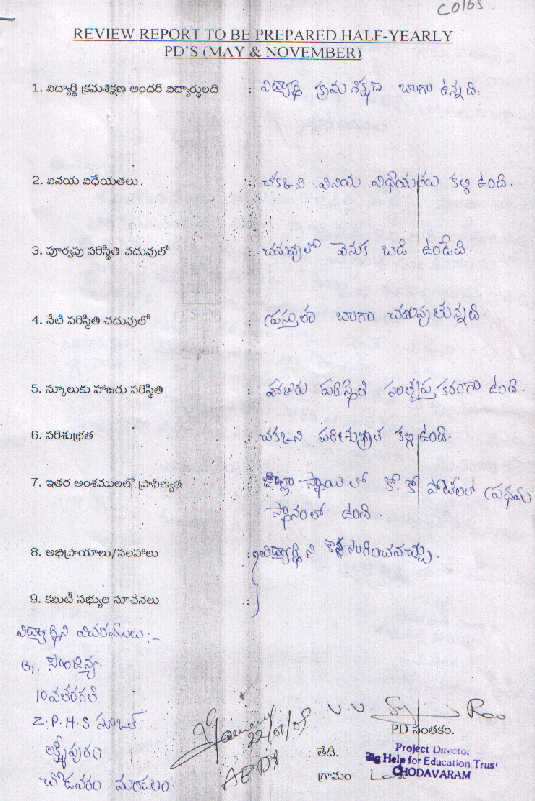 REVIEW REPORT TO BE PREPARED HALF-YEARLY
PD'S (MAY & NOVEMBER)
1. విద్యార్థి క్రమశిక్షణ అందరి విద్యార్థులది : విద్యార్థి క్రమ శిక్షణ బాగా ఉన్నది.
2. వినయ విధేయతలు. : చక్కని వినయ విధేయతలు కల్గి ఉంది.
3. పూర్వపు పరిస్థితి చదువులో : చదువులో వెనుక బడి ఉండేది
4. నేటి పరిస్థితి చదువులో : ప్రస్తుతం బాగా చదువుతున్నది
5. స్కూలుకు హాజరు పరిస్థితి : హాజరు పరిస్థితి సంతృప్తి కరంగా ఉంది.
6. పరిశుభ్రత : చక్కని పరిశుభ్రత కల్గి ఉంది.
7. ఇతర అంశములలో ప్రావీణ్యత : జిల్లా స్థాయి లో కో. కో పోటీలలో ప్రథమ
స్థానంలో ఉంది.
8. అభిప్రాయాలు/సలహాలు : విద్యార్థిని కొనసాగించవచ్చు.
9. కమిటీ సభ్యుల సూచనలు :
విద్యార్థిని వివరములు :-
10వ తరగతి
Z.P.H.S
లక్ష్మీపురం
చోడవరం మండలం
PD సంతకం.
తేది.
గ్రామం
Project Director
Big Help for Education Trust
CHODAVARAM